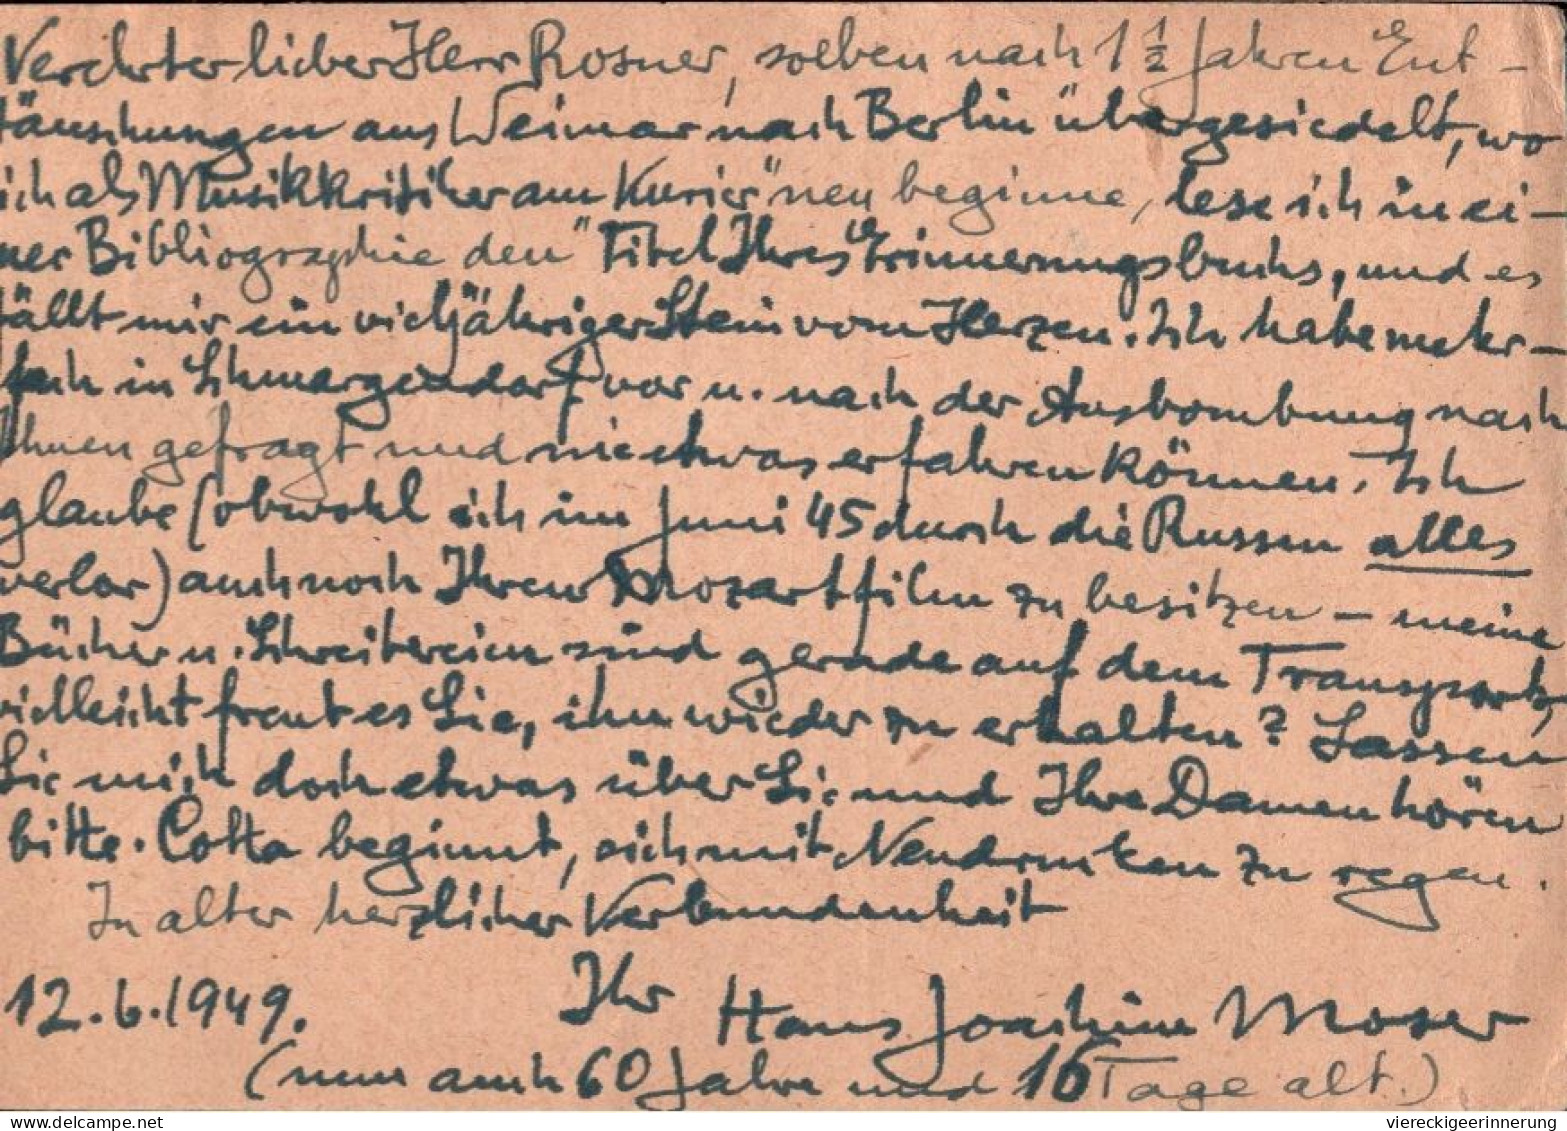 Verehrter lieber Herr Rosner, soeben nach 1 1/2 Jahren Ent-
täuschungen aus Weimar nach Berlin übergesiedelt, wo
ich als Musikkritiker am "Kurier" neu beginne, lese ich in ei-
ner Bibliographie den Titel Ihres Erinnerungsbuchs, und es
fällt mir ein vieljähriger Stein vom Herzen. Ich habe mehr-
fach in Schmargendorf vor u. nach der Ausbombung nach
Ihnen gefragt und nie etwas erfahren können. Ich
glaube (obwohl ich im Juni 45 durch die Russen alles
verlor) auch noch Ihren Mozartfilm zu besitzen – meine
Bücher u. Schreibereien sind gerade auf dem Transport,
vielleicht freut es Sie, ihn wieder zu erhalten? Lassen
Sie mich doch etwas über Sie und Ihre Damen hören
bitte. Cotta beginnt, sich mit Neudrucken zu regen.
In alter herzlicher Verbundenheit
12.6.1949. Ihr Hans Joachim Moser
(nun auch 60 Jahre und 16 Tage alt.)
delcampe.net
viereckigeerinnerung